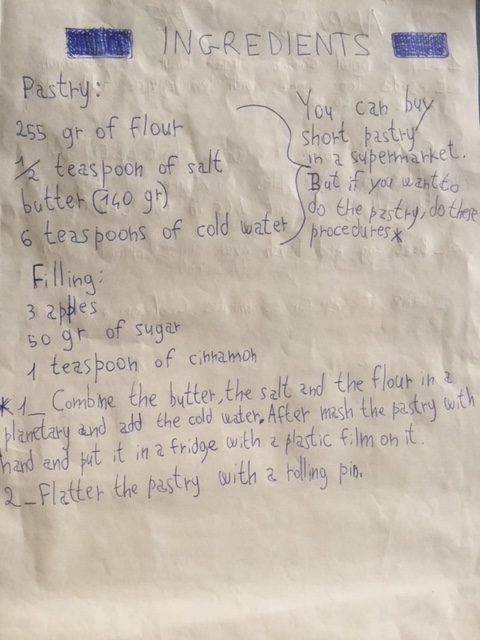 INGREDIENTS
Pastry:
255 gr of flour
1/2 teaspoon of salt
butter (140 gr)
6 teaspoons of cold water
You can buy
short pastry
in a supermarket.
But if you want to
do the pastry, do these
procedures*
Filling:
3 apples
50 gr of sugar
1 teaspoon of cinnamon
* 1_ Combine the butter, the salt and the flour in a
planetary and add the cold water. After mash the pastry with
hand and put it in a fridge with a plastic film on it.
2_Flatter the pastry with a rolling pin.